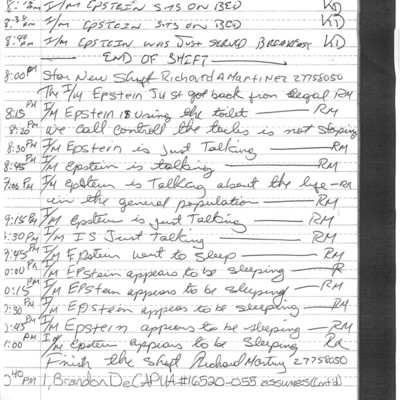 I/M EPSTEIN SITS ON BED KD
I/M EPSTEIN SITS ON BED KD
8:40 AM I/M EPSTEIN WAS JUST SERVED BREAKFAST KD
END OF SHIFT
8:00 PM Star New Shift Richard A Martinez 27758050
The I/M Epstein Just got back from legal RM
8:15 PM I/M Epstein is using the toilet RM
8:20 PM We call controll the toilet is not stoping
8:30 PM I/M Epstein is Just Talking RM
8:45 PM I/M Epstein is talking RM
9:00 PM I/M Epstein is Talking about the life RM
in the general population RM
9:15 PM I/M Epstein is just Talking RM
:30 PM I/M IS Just Talking RM
9:45 PM I/M Epstein went to sleep RM
0:00 PM I/M EPStein appears to be sleeping R
0:15 PM I/M EPStein appears to be sleeping RM
:30 PM I/M EPStein appears to be sleeping RM
:45 PM I/M Epstein appears to be sleeping RM
:00 PM I/M Epstein appears to be sleeping
Finish the shift Richard 27758050
:40 PM I, Brandon DeCAPUA #16520-055 assumes (Cont'd)